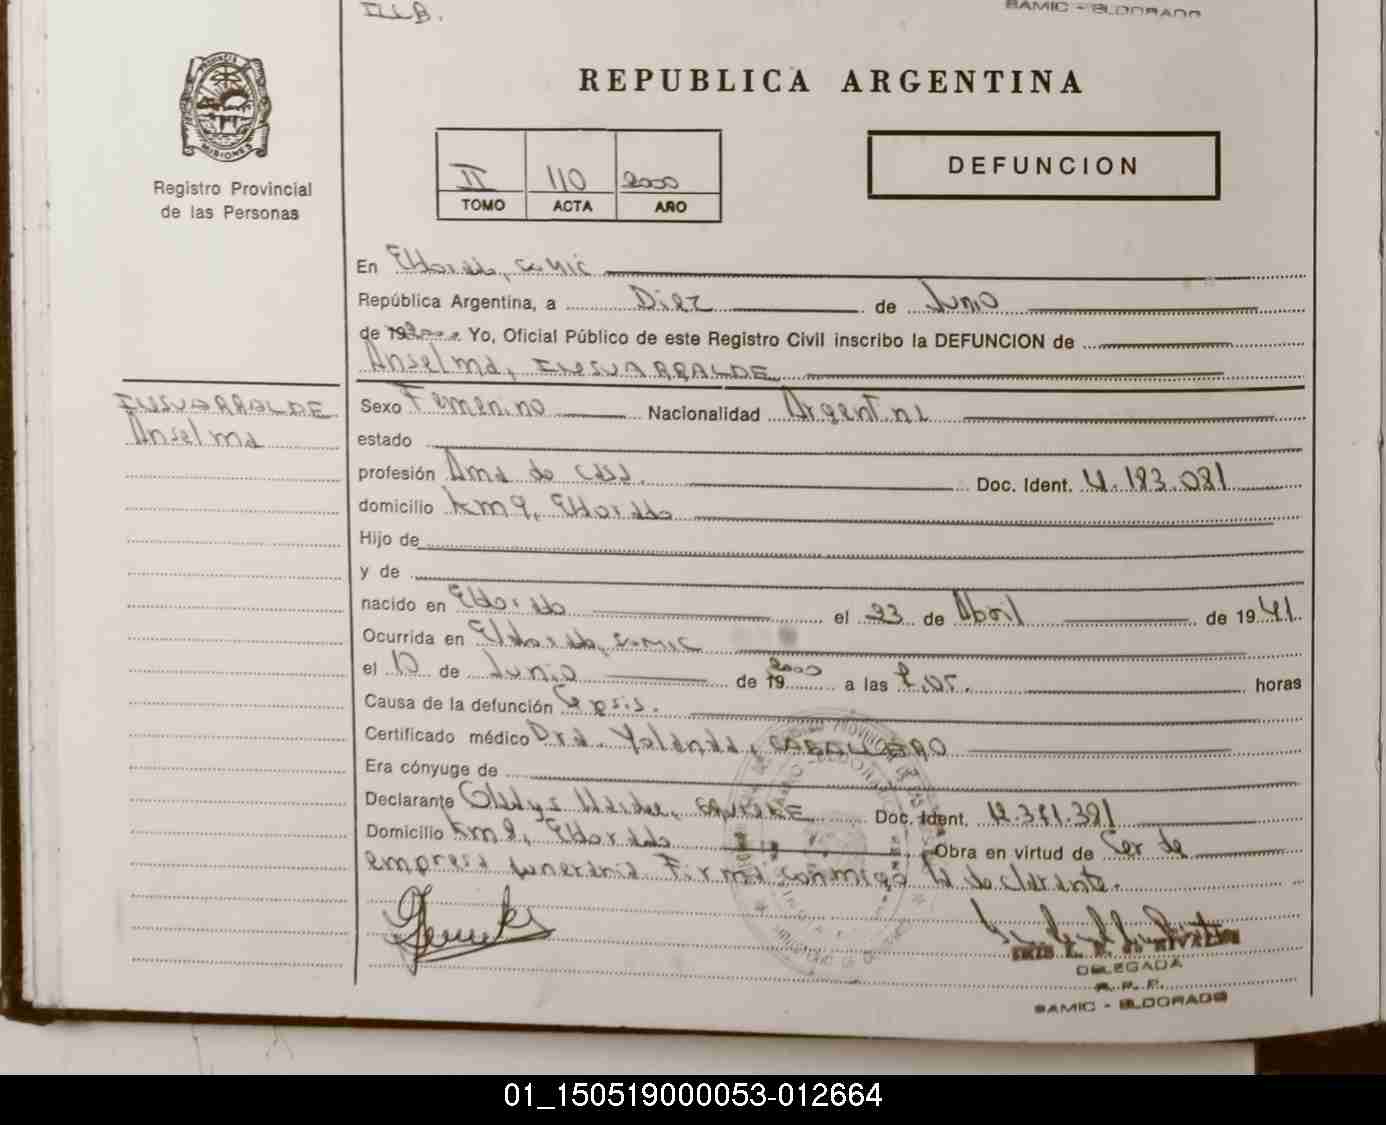 SAMIC - ELDORADO
PROVINCIA
MISIONES
Registro Provincial
de las Personas
REPUBLICA ARGENTINA
II 110 2000
TOMO ACTA AÑO
DEFUNCION
En Eldorado, SAMIC
República Argentina, a Diez de Junio
de 192000. Yo, Oficial Público de este Registro Civil inscribo la DEFUNCION de
Anselma, INSUARRALDE
INSUARRALDE
Anselma
Sexo Femenino Nacionalidad Argentina
estado
profesión Ama de casa. Doc. Ident. 4.183.081
domicilio Km 9, Eldorado
Hijo de
y de
nacido en Eldorado el 23 de Abril de 1941
Ocurrida en Eldorado, SAMIC
el 10 de Junio de 19 2000 a las horas
Causa de la defunción Sepsis.
Certificado médico Dra. Yolanda, CABALLERO
Era cónyuge de
Declarante Gladys Doc. Ident.
Domicilio Km 9, Eldorado Obra en virtud de Ser de
empresa funeraria. Firma conmigo la declarante.
DELEGADA
R. P. P.
SAMIC - ELDORADO
01_150519000053-012664